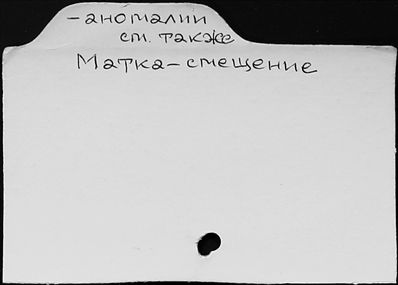 -аномалии
см. также
Матка-смещение